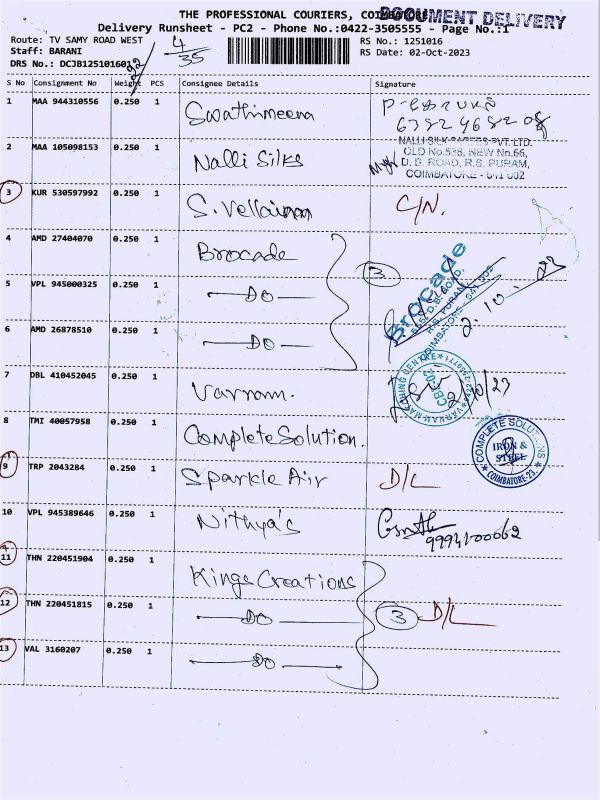 THE PROFESSIONAL COURIERS, COIMBATORE
DOCUMENT DELIVERY
Delivery Runsheet - PC2 - Phone No.:0422-3505555 - Page No.:1
Route: TV SAMY ROAD WEST
4/35
RS No.: 1251016
Staff: BARANI
RS Date: 02-Oct-2023
DRS No.: DCJB125101601
S No Consignment No Weight PCS Consignee Details Signature
1 MAA 944310556 0.250 1 Swathimeena
6382468208
2 MAA 105098153 0.250 1 Nalli Silks
NALLI SILK SAREES PVT. LTD.
OLD No.538, NEW No.66,
D. B. ROAD, R.S. PURAM,
COIMBATORE - 641 002
3 KUR 530597992 0.250 1 S. Vellaiman C/N.
4 AMD 27404070 0.250 1 Brocade
3
Brocade
D.B. ROAD,
R.S. PURAM,
COIMBATORE - 641 002
2.10.23
5 VPL 945000325 0.250 1 DO
6 AMD 26878510 0.250 1 DO
7 DBL 410452045 0.250 1 Varnam.
VARNAM MATCHING CENTRE
CBE-02
2/10/23
8 TMI 40057958 0.250 1 Complete Solution.
COMPLETE SOLUTIONS
IRON &
STEEL
COIMBATORE-23
9 TRP 2043284 0.250 1 Sparkle Air D/L
10 VPL 945389646 0.250 1 Nithya's
9994100062
11 THN 220451904 0.250 1 Kings Creations
12 THN 220451815 0.250 1 DO 3 D/L
13 VAL 3160207 0.250 1 DO